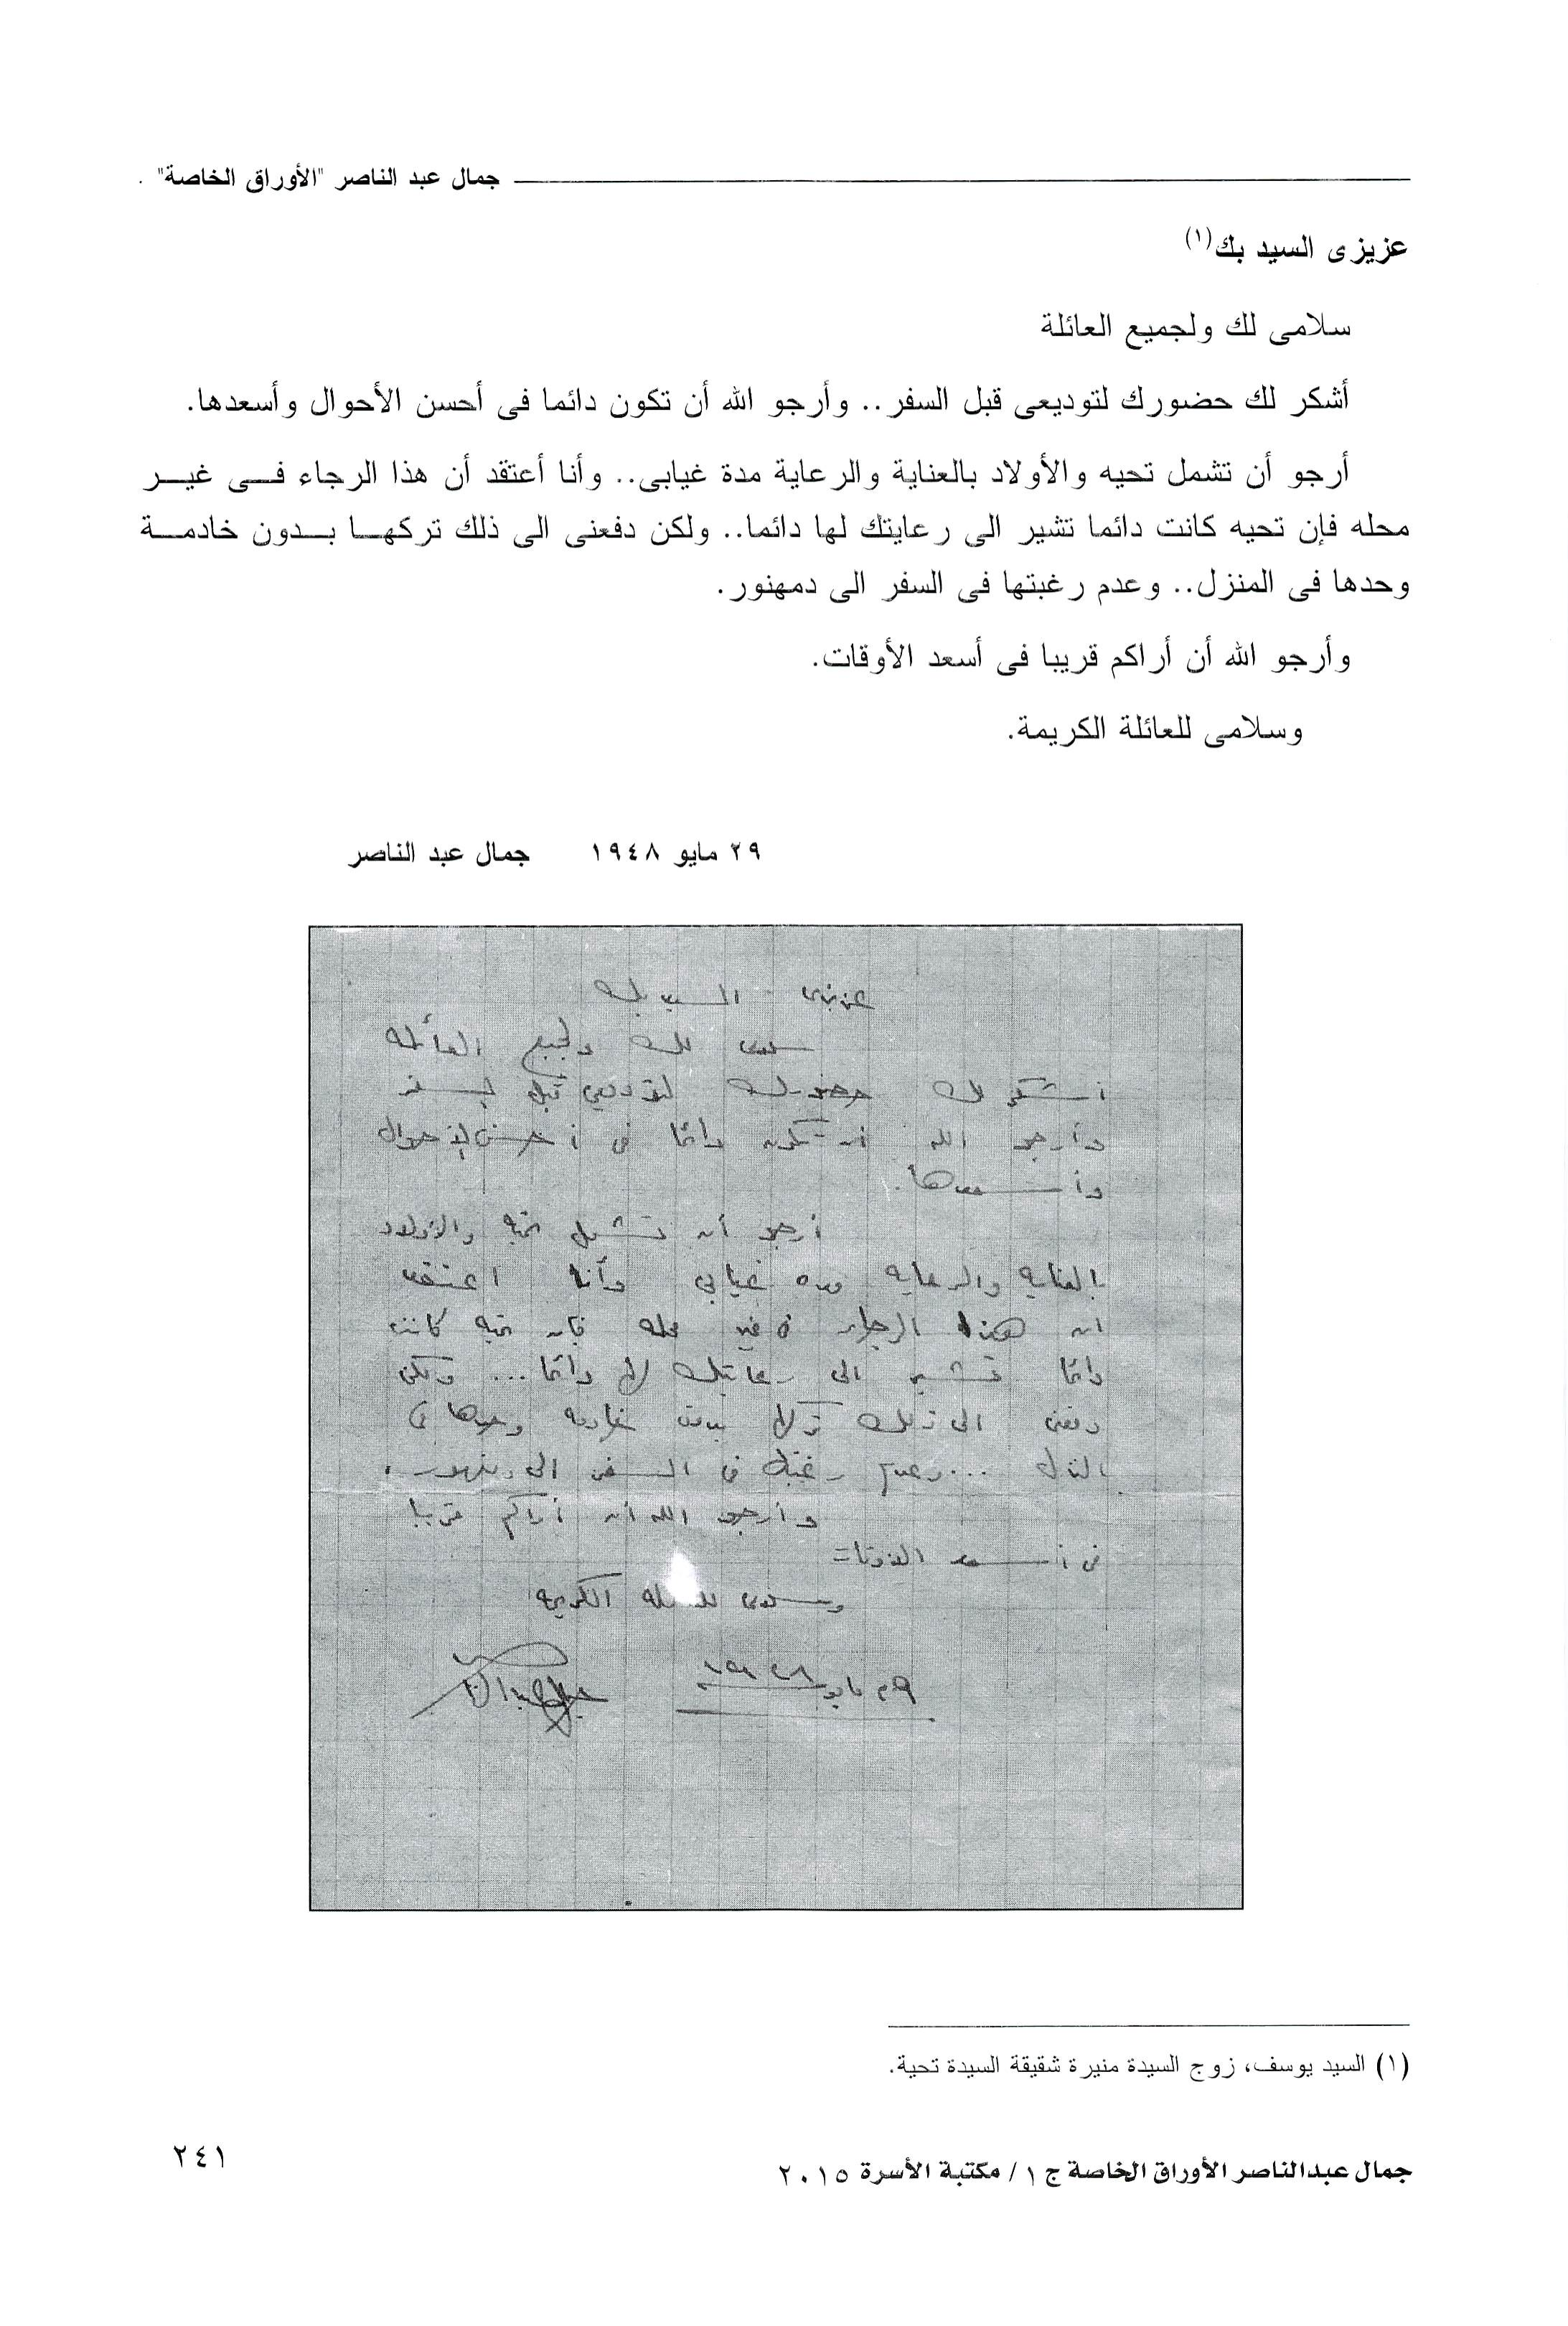 جمال عبد الناصر "الأوراق الخاصة"
عزيزى السيد بك(١)
سلامى لك ولجميع العائلة
أشكر لك حضورك لتوديعى قبل السفر.. وأرجو الله أن تكون دائما فى أحسن الأحوال وأسعدها.
أرجو أن تشمل تحيه والأولاد بالعناية والرعاية مدة غيابى.. وأنا أعتقد أن هذا الرجاء فى غير
محله فإن تحيه كانت دائما تشير الى رعايتك لها دائما.. ولكن دفعنى الى ذلك تركها بدون خادمة
وحدها فى المنزل.. وعدم رغبتها فى السفر الى دمهنور.
وأرجو الله أن أراكم قريبا فى أسعد الأوقات.
وسلامى للعائلة الكريمة.
٢٩ مايو ١٩٤٨ جمال عبد الناصر
عزيزى السيد بك
سلامى لك ولجميع العائله
أشكر لك حضورك لتوديعى قبل السفر
وأرجو الله أن تكون دائما فى أحسن الأحوال
وأسعدها.
أرجو أن تشمل تحيه والأولاد
بالعنايه والرعايه مده غيابى وأنا اعتقد
ان هذا الرجاء فى غير محله فان تحيه كانت
دائما تشير الى رعايتك لها دائما... ولكن
دفعنى الى ذلك تركها بدون خادمه وحدها فى
المنزل ... وعدم رغبتها فى السفر الى دمنهور.
وأرجو الله أن أراكم قريبا
فى أسعد الأوقات
وسلامى للعائله الكريمه
٢٩ مايو ١٩٤٨ جمال عبد الناصر
(١) السيد يوسف، زوج السيدة منيرة شقيقة السيدة تحية.
جمال عبدالناصر الأوراق الخاصة ج ١/ مكتبة الأسرة ٢٠١٥
٢٤١